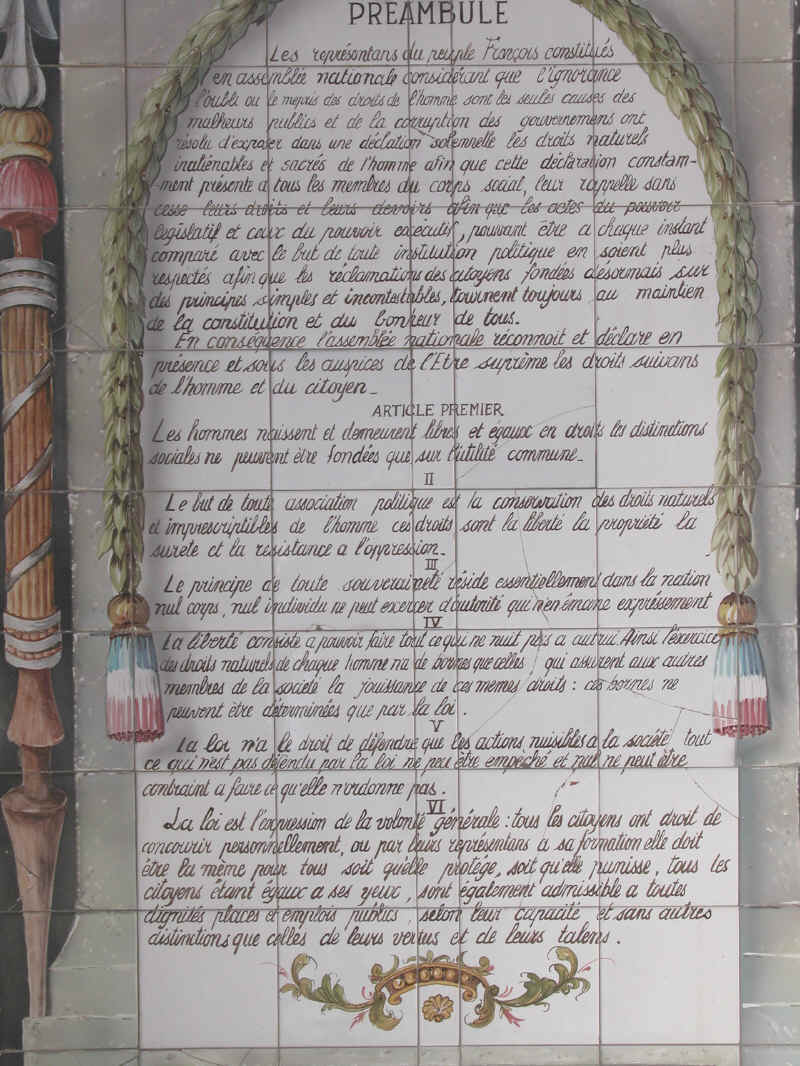 PREAMBULE
Les représentans du peuple François constitués
en assemblée nationale considérant que l'ignorance
l'oubli ou le mepris des droits de l'homme sont les seules causes des
malheurs publics et de la corruption des gouvernemens ont
résolu d'exposer dans une déclation solemnelle les droits naturels
inaliénables et sacrés de l'homme afin que cette déclaration constam-
-ment présente a tous les membres du corps social, leur rappelle sans
cesse leurs droits et leurs devoirs afin que les actes du pouvoir
legislatif et ceux du pouvoir exécutif, pouvant être a chaque instant
comparé avec le but de toute institution politique en soient plus
respectés afin que les réclamations des citoyens fondées désormais sur
des principes simples et incontestables, tournent toujours au maintien
de la constitution et du bonheur de tous.
En conséquence l'assemblée nationale réconnoit et déclare en
présence et sous les auspices de l'Etre suprême les droits suivans
de l'homme et du citoyen_
ARTICLE PREMIER
Les hommes naissent et demeurent libres et égaux en droits les distinctions
sociales ne peuvent être fondées que sur l'utilité commune_
II
Le but de toute association politique est la conservation des droits naturels
et imprescriptibles de l'homme ces droits sont la liberté la propriété la
surete et la resistance a l'oppression_
III
Le principe de toute souveraineté réside essentiellement dans la nation
nul corps, nul individu ne peut exercer d'autorité qui n'en émane expréssement
IV
La liberté consiste a pouvoir faire tout ce qui ne nuit pas a autrui. Ainsi l'exercice
des droits naturels de chaque homme n'a de bornes que celles qui assurent aux autres
membres de la société la jouissance de ces memes droits : ces bornes ne
peuvent être déterminées que par la loi .
V
La loi n'a le droit de défendre que les actions nuisibles a la société tout
ce qui n'est pas défendu par la loi ne peu être empeché et nul ne peut être
contraint a faire ce qu'elle n'ordonne pas .
VI
La loi est l'expression de la volonté générale : tous les citoyens ont droit de
concourir personnellement, ou par leurs représentans a sa formation elle doit
être la même pour tous soit qu'elle protége, soit qu'elle punisse, tous les
citoyens étant égaux a ses yeux, sont également admissible a toutes
dignités places et emplois publics, selon leur capacité et sans autres
distinctions que celles de leurs vertus et de leurs talens .